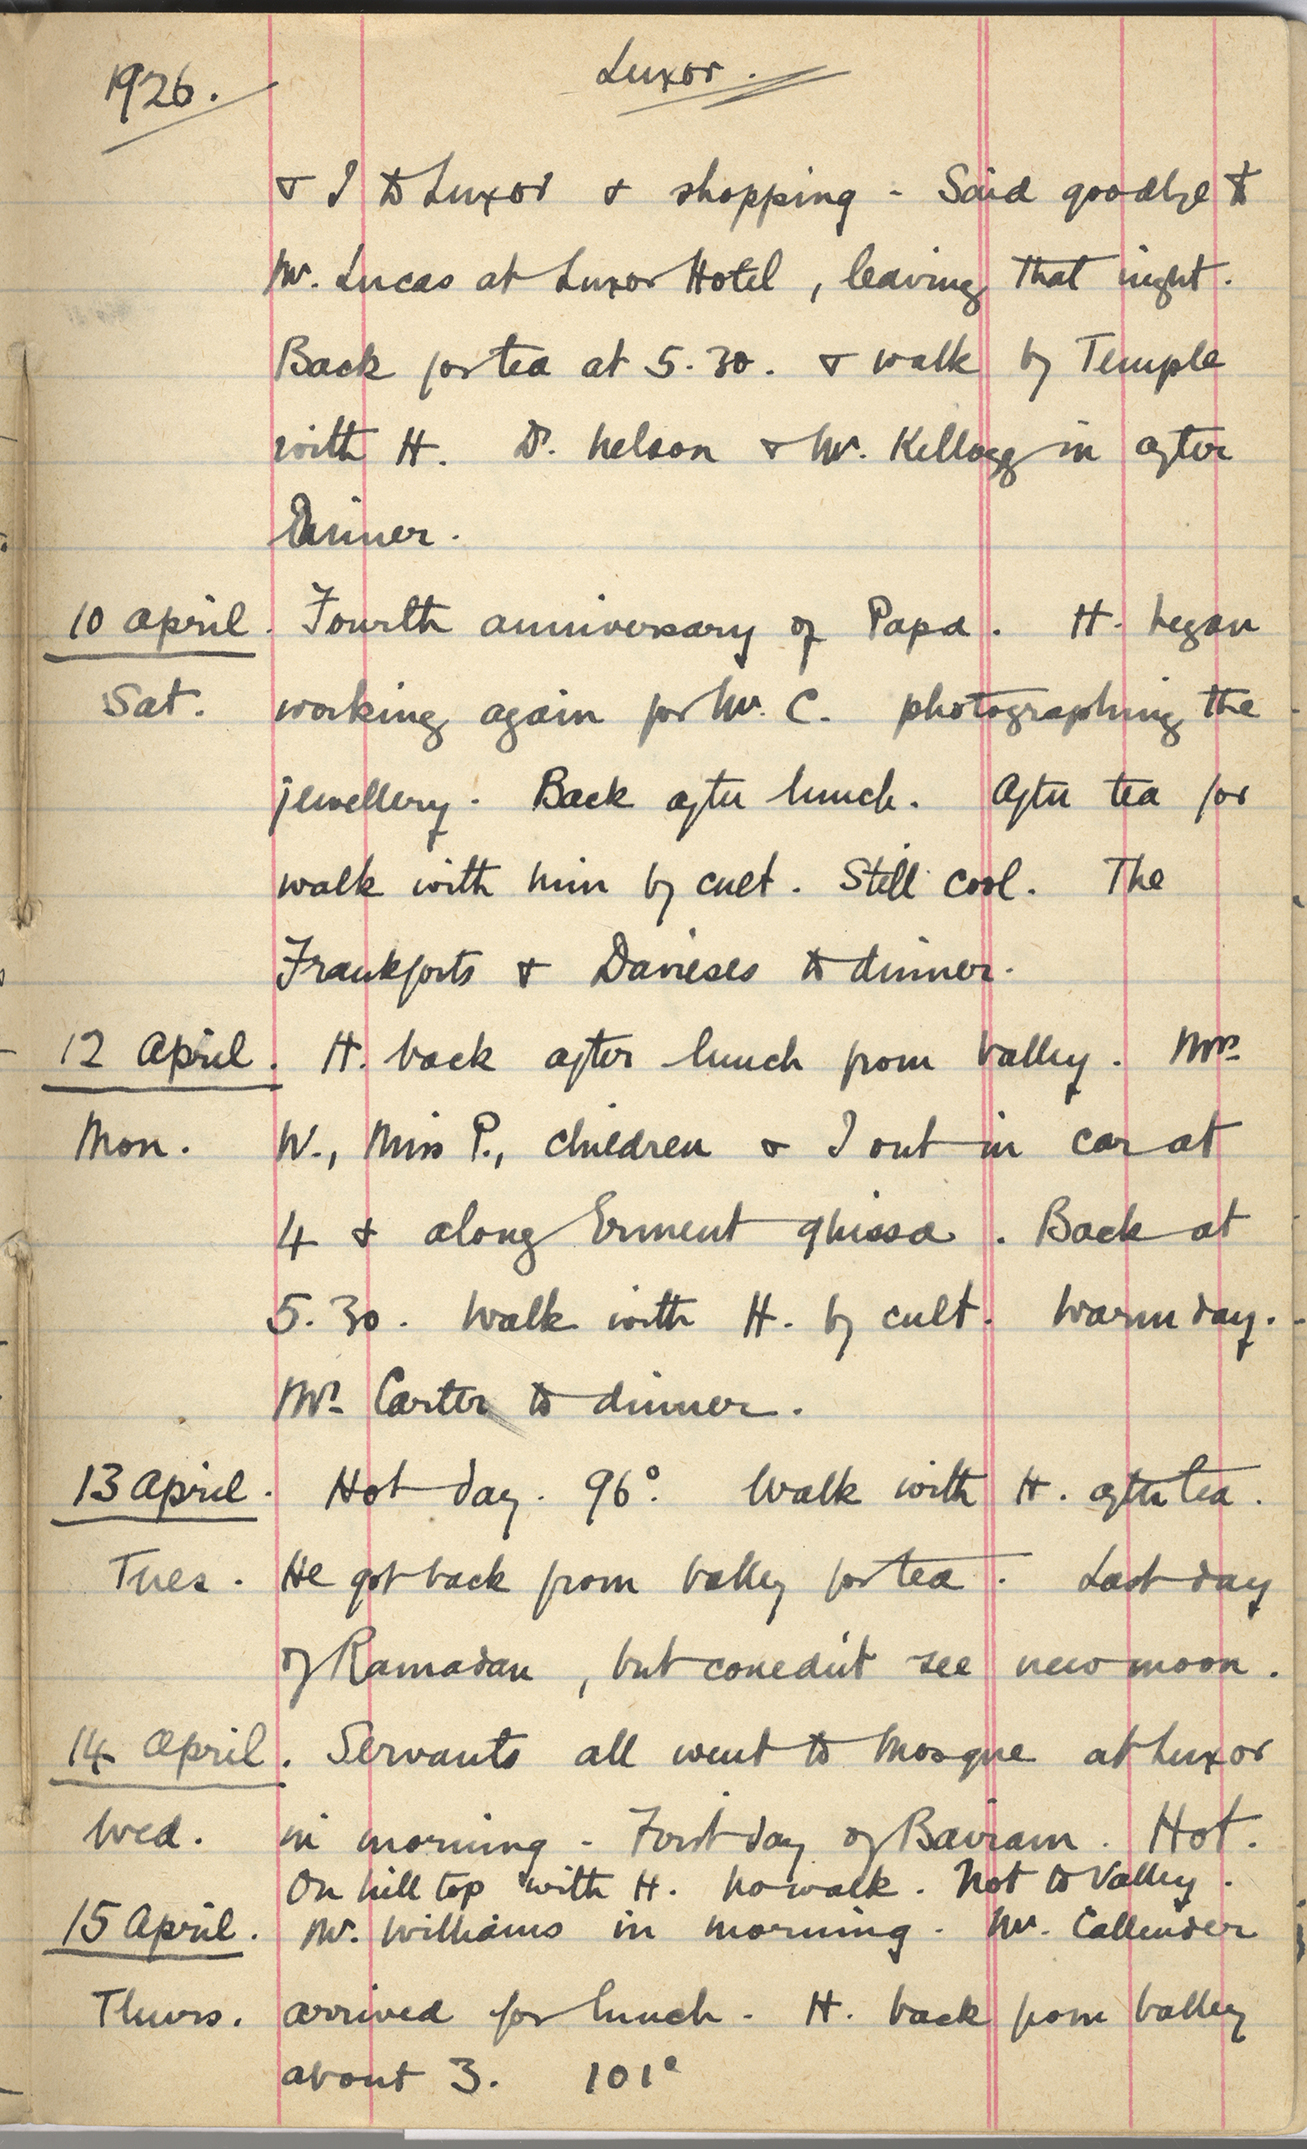 1926.
Luxor.
& I to Luxor & shopping - Said goodbye to
Mr. Lucas at Luxor Hotel, leaving that night.
Back for tea at 5.30. & walk by Temple
with H. Dr. Nelson & Mr. Kellogg in after
Dinner.
10 April. Fourth anniversary of Papa. H. began
Sat. working again for Mr. C. photographing the
jewellery. Back after lunch. After tea for
walk with him by cult. Still cool. The
Frankforts & Davieses to dinner.
12 April. H. back after lunch from Valley. Mrs
Mon. W., Miss P., children & I out in car at
4 & along Erment ghissa. Back at
5.30. Walk with H. by cult. Warm day.
Mr. Carter to dinner.
13 April. Hot day. 96°. Walk with H. after tea.
Tues. He got back from Valley for tea. Last day
of Ramadan, but couldn't see new moon.
14 April. Servants all went to Mosque at Luxor
Wed. in morning - First day of Bairam. Hot.
On hill top with H. No walk. Not to Valley.
15 April. Mr. Williams in morning. Mr. Callender
Thurs. arrived for lunch. H. back from Valley
about 3. 101°